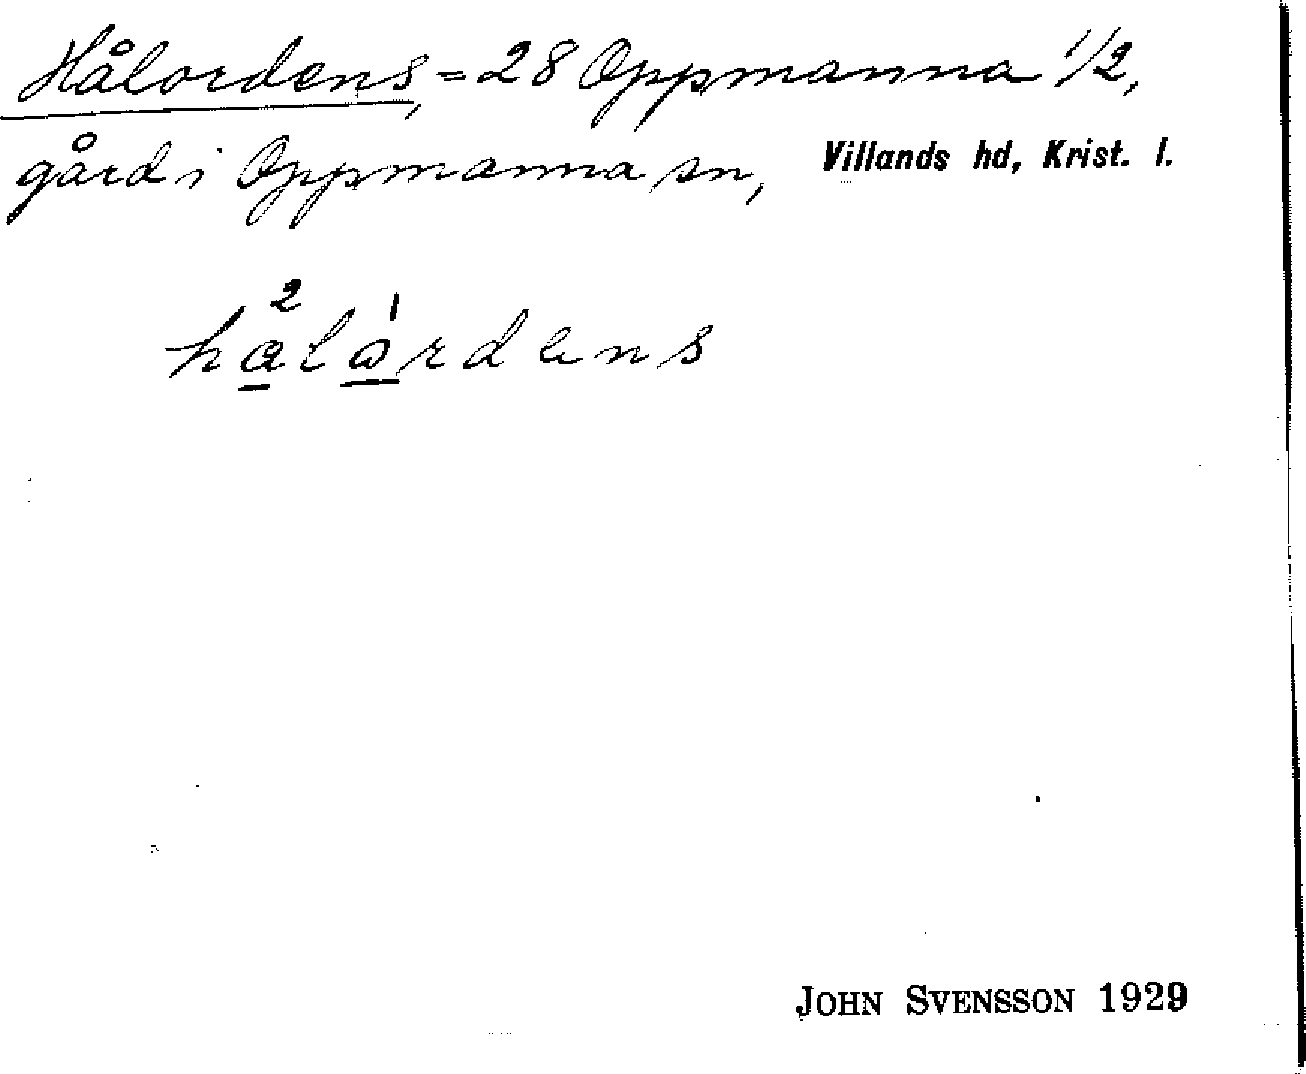 Hålordens, = 28 Oppmanna 1/2,
gård i Oppmanna sn, Villands hd, Krist. l.
JOHN SVENSSON 1929